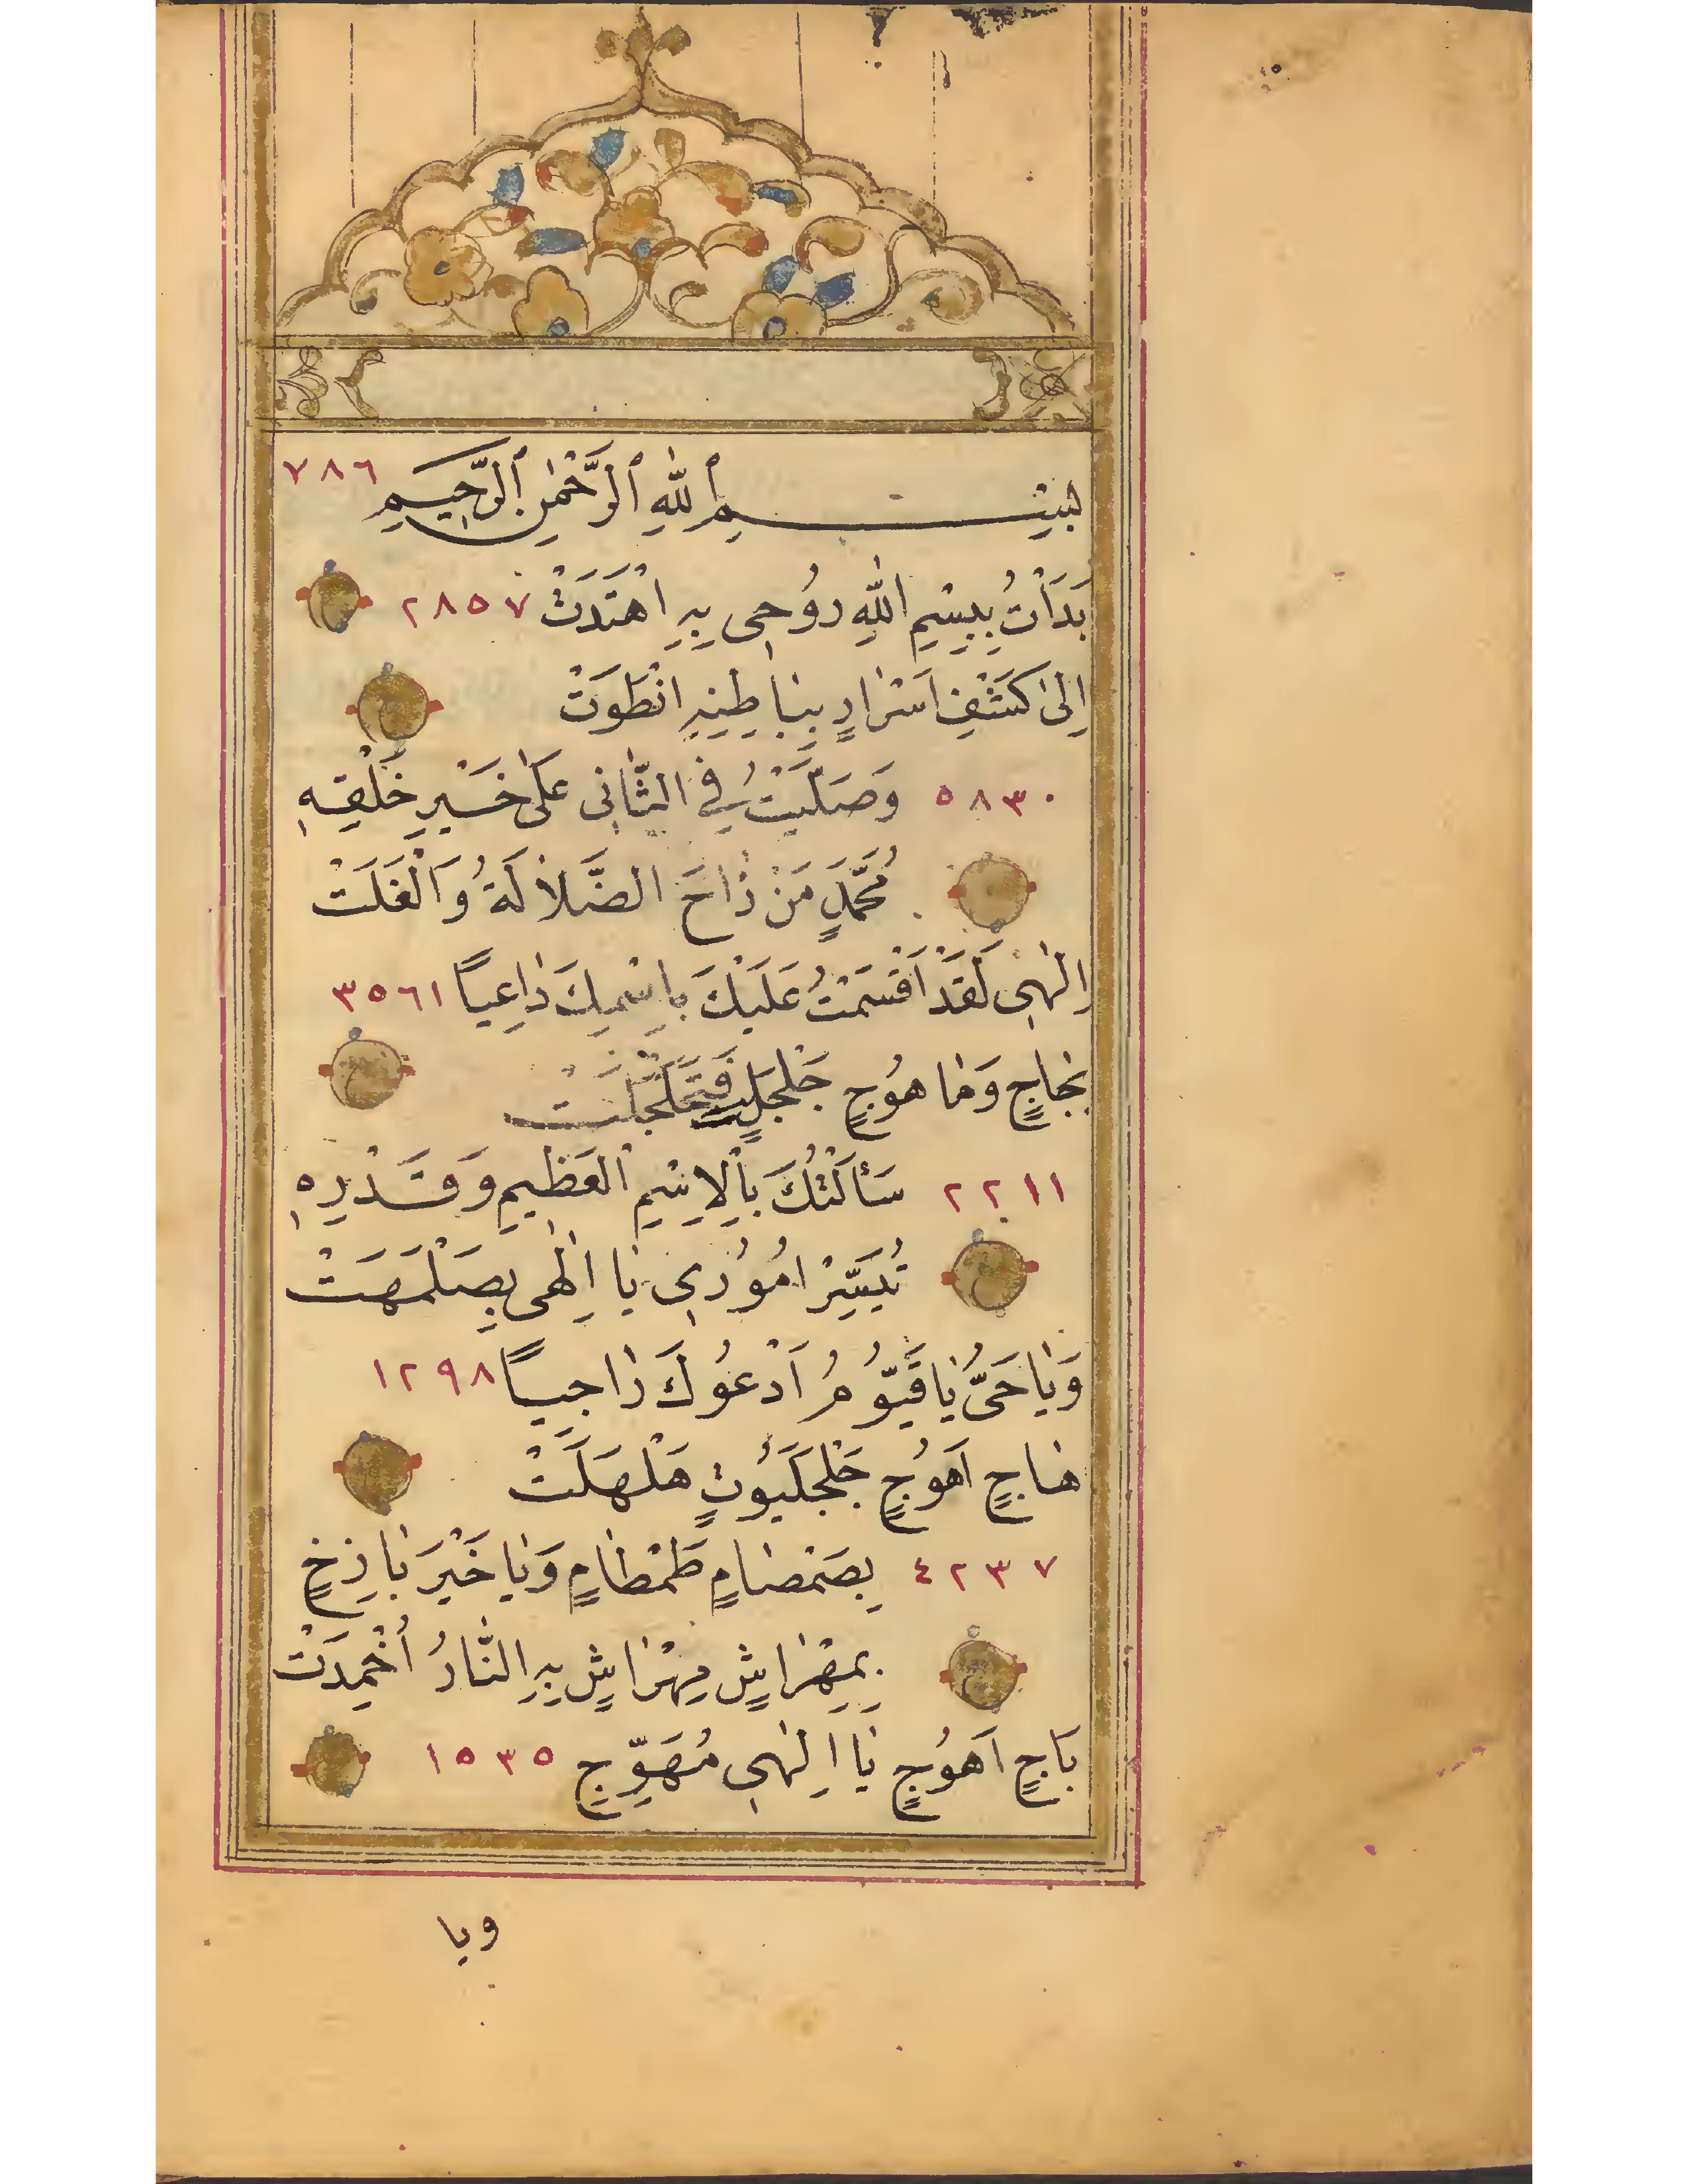 بِسْمِ اللّٰهِ الرَّحْمٰنِ الرَّحِيمِ ٧٨٦
بَدَأْتُ بِبِسْمِ اللّٰهِ رُوحِى بِهِ اهْتَدَتْ ٢٨٥٧
اِلىٰ كَشْفِ اَسْرَارٍ بِبَاطِنِهِ انْطَوَتْ
٥٨٣٠ وَصَلَّيْتُ فِى الثَّانِى عَلىٰ خَيْرِ خَلْقِهِ
مُحَمَّدٍ مَنْ زَاحَ الضَّلَالَةُ وَالْغَلَتْ
اِلٰهِى لَقَدْ اَقْسَمْتُ عَلَيْكَ بِاِسْمِكَ دَاعِياً ٣٥٦١
بِجَاجٍ وَمَا هُوجٍ جَلْجَلٍ فَتَجَلْجَلَتْ
٢٢١١ سَأَلْتُكَ بِالْاِسْمِ الْعَظِيمِ وَقَدْرِهِ
تُيَسِّرْ اُمُورِى يَا اِلٰهِى بِصَلْمَهَتْ
وَيَا حَىُّ يَا قَيُّومُ اَدْعُوكَ رَاجِياً ١٢٩٨
هَاجٍ اَهُوجٍ جَلْجَلَيُوتٍ هَلْهَلَتْ
٤٢٣٧ بِصَمْصَامٍ طَمْطَامٍ وَيَا خَيْرَ بَازِخٍ
بِمِهْرَاشٍ مِهْرَاشٍ بِهِ النَّارُ اُخْمِدَتْ
بَاجٍ اَهُوجٍ يَا اِلٰهِى مُهَوِّجٍ ١٥٣٥
ويا